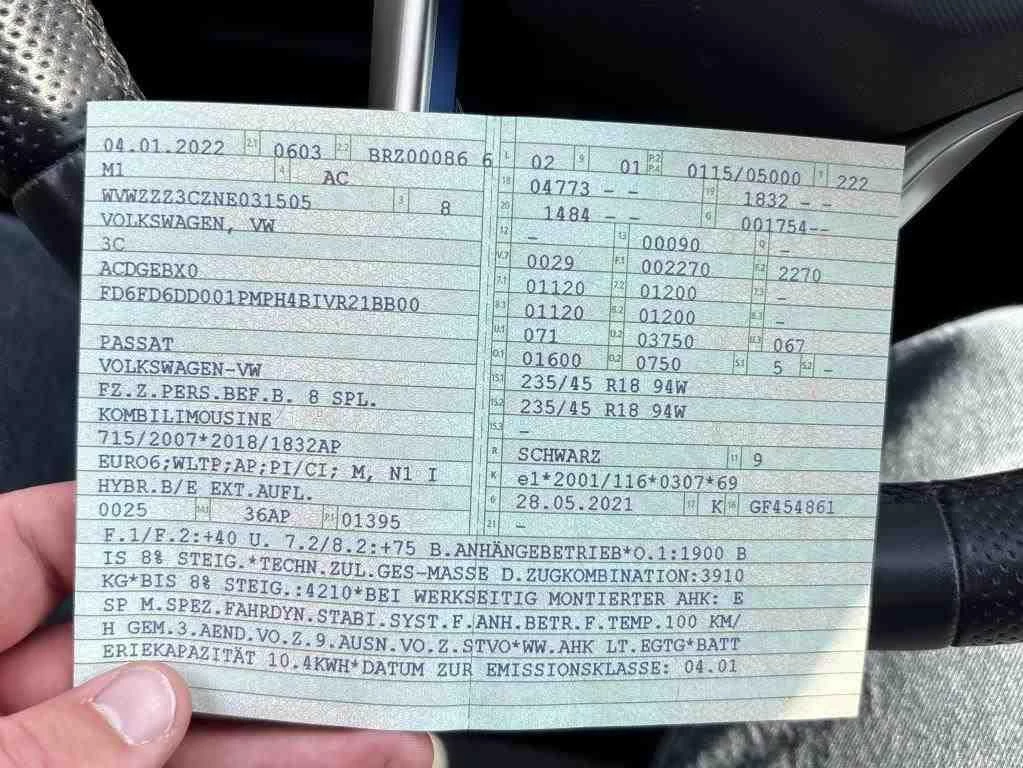 04.01.2022 2.1 0603 2.2 BRZ00086 6
M1 4 AC
WVWZZZ3CZNE031505 3 8
VOLKSWAGEN, VW
3C
ACDGEBX0
FD6FD6DD001PMPH4BIVR21BB00
PASSAT
VOLKSWAGEN-VW
FZ.Z.PERS.BEF.B. 8 SPL.
KOMBILIMOUSINE
715/2007*2018/1832AP
EURO6;WLTP;AP;PI/CI; M, N1 I
HYBR.B/E EXT.AUFL.
0025 14.1 36AP P.1 01395
L 02 9 01 P.2 P.4 0115/05000 T 222
18 04773 - - 19 1832 - -
20 1484 - - G 001754--
12 - 13 00090 Q -
V.7 0029 F.1 002270 F.2 2270
7.1 01120 7.2 01200 7.3 -
8.1 01120 8.2 01200 8.3 -
U.1 071 U.2 03750 U.3 067
O.1 01600 O.2 0750 S.1 5 S.2 -
15.1 235/45 R18 94W
15.2 235/45 R18 94W
15.3 -
R SCHWARZ 11 9
K e1*2001/116*0307*69
6 28.05.2021 17 K 16 GF454861
21 -
F.1/F.2:+40 U. 7.2/8.2:+75 B.ANHÄNGEBETRIEB*O.1:1900 B
IS 8% STEIG.*TECHN.ZUL.GES-MASSE D.ZUGKOMBINATION:3910
KG*BIS 8% STEIG.:4210*BEI WERKSEITIG MONTIERTER AHK: E
SP M.SPEZ.FAHRDYN.STABI.SYST.F.ANH.BETR.F.TEMP.100 KM/
H GEM.3.AEND.VO.Z.9.AUSN.VO.Z.STVO*WW.AHK LT.EGTG*BATT
ERIEKAPAZITÄT 10.4KWH*DATUM ZUR EMISSIONSKLASSE: 04.01